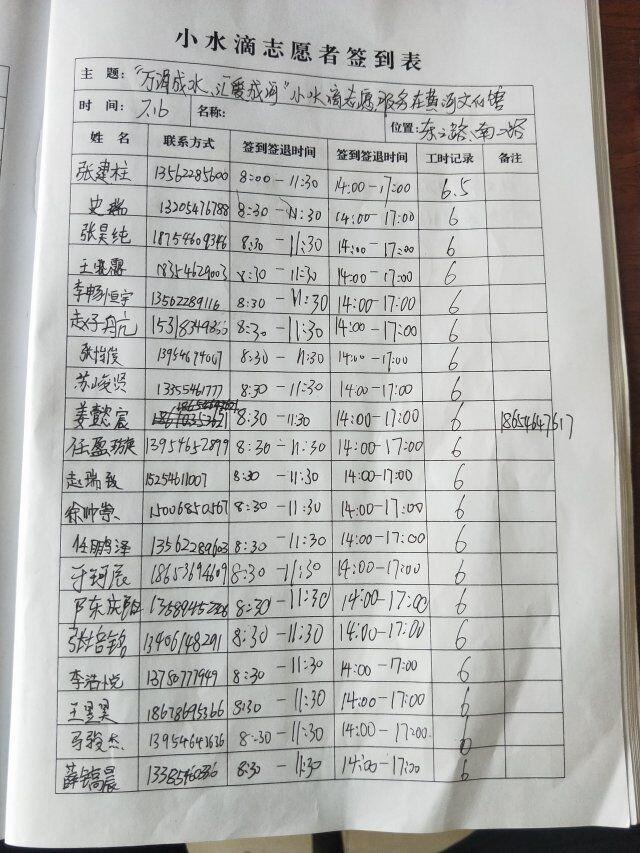 小水滴志愿者签到表
主 题: "万滴成水、汇爱成河"小水滴志愿服务在黄河文化馆
时 间: 7.16 名称: 位置: 东二路、南二路
姓 名 联系方式 签到签退时间 签到签退时间 工时记录 备注
张建柱 13562285600 8:00-11:30 14:00-17:00 6.5
史瑞 13205476788 8:30-11:30 14:00-17:00 6
张昊纯 18754609346 8:30-11:30 14:00-17:00 6
18354629003 8:30-11:30 14:00-17:00 6
李畅恒宇 13562289116 8:30-11:30 14:00-17:00 6
8:30-11:30 14:00-17:00 6
张怡俊 13954674007 8:30-11:30 14:00-17:00 6
苏峻贤 13355461777 8:30-11:30 14:00-17:00 6
姜懿宸 8:30-11:30 14:00-17:00 6 18654647617
任盈璇 13954652899 8:30-11:30 14:00-17:00 6
赵瑞毅 15254611007 8:30-11:30 14:00-17:00 6
徐帅崇 15006850567 8:30-11:30 14:00-17:00 6
任鹏泽 13562289603 8:30-11:30 14:00-17:00 6
于轲辰 18653694609 8:30-11:30 14:00-17:00 6
8:30-11:30 14:00-17:00 6
张培铭 13406148291 8:30-11:30 14:00-17:00 6
李浩悦 8:30-11:30 14:00-17:00 6
18678695366 8:30-11:30 14:00-17:00 6
马骏杰 13954643636 8:30-11:30 14:00-17:00
薛镐晨 8:30-11:30 14:00-17:00 6